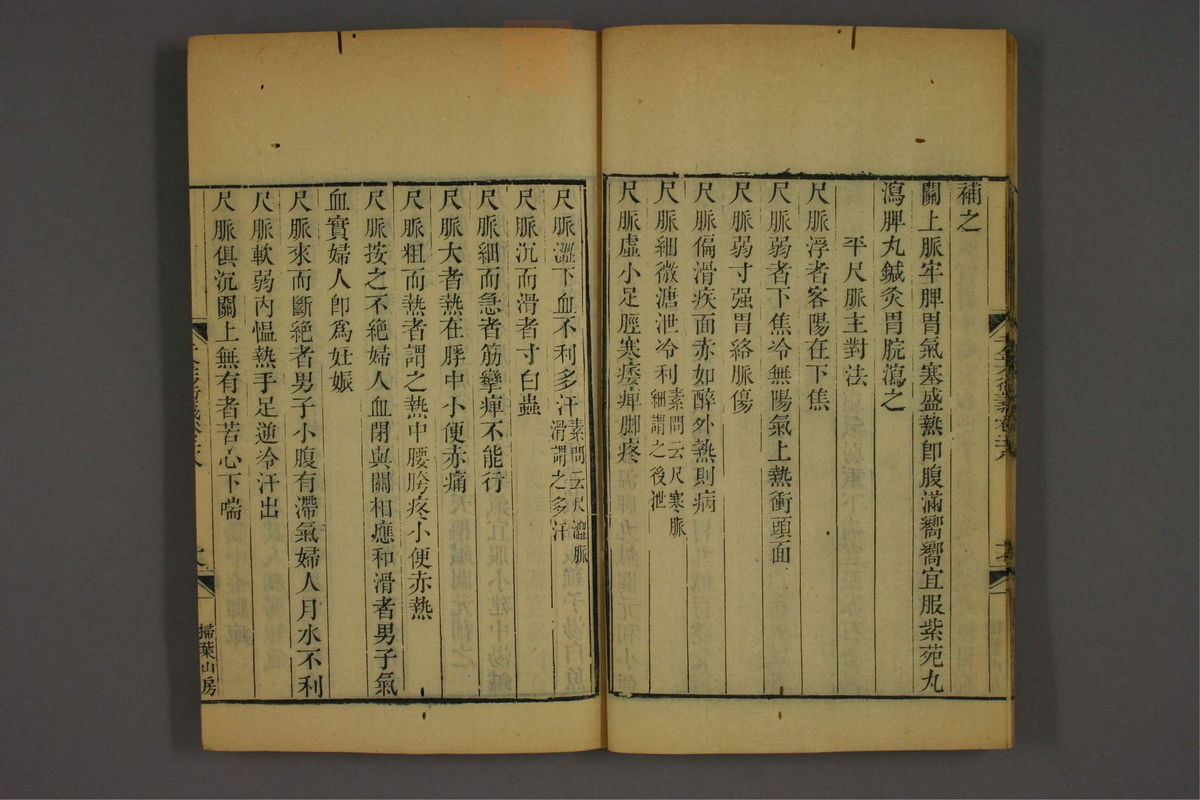 補之
關上脈牢脾胃氣塞盛熱卽腹滿嚮嚮宜服紫苑丸
瀉脾丸鍼灸胃脘瀉之
平尺脈主對法
尺脈浮者客陽在下焦
尺脈弱者下焦冷無陽氣上熱衝頭面
尺脈弱寸强胃絡脈傷
尺脈偏滑疾面赤如醉外熱則病
尺脈細微溏泄冷利素問云尺寒脈細謂之後泄
尺脈虛小足脛寒痿痺脚疼
尺脈澀下血不利多汗素問云尺澀脈滑謂之多汗
尺脈沉而滑者寸白蟲
尺脈細而急者筋攣痺不能行
尺脈大者熱在脬中小便赤痛
尺脈粗而熱者謂之熱中腰胯疼小便赤熱
尺脈按之不絶婦人血閉與關相應和滑者男子氣
血實婦人卽爲妊娠
尺脈來而斷絶者男子小腹有滯氣婦人月水不利
尺脈軟弱內慍熱手足逆冷汗出
尺脈俱沉關上無有者苦心下喘
掃葉山房